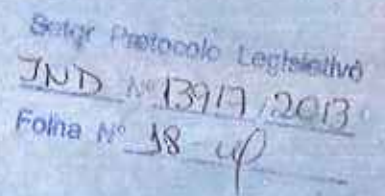 Setor Protocolo Legislativo
IND Nº 13917/2013
Folha Nº 18